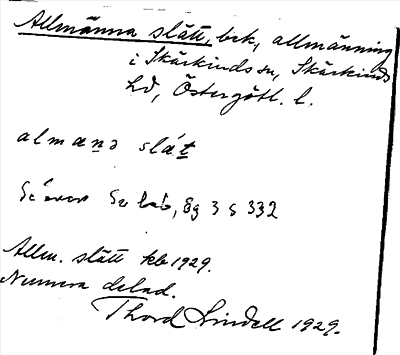 Allmänna slätt, bck, allmänning
i Skärkinds sn, Skärkinds
hd, Östergötl. l.
almaṉə slát̲
3 s 332
Allm. slätt kb 1929.
Numera delad.
Thord Lindell 1929.